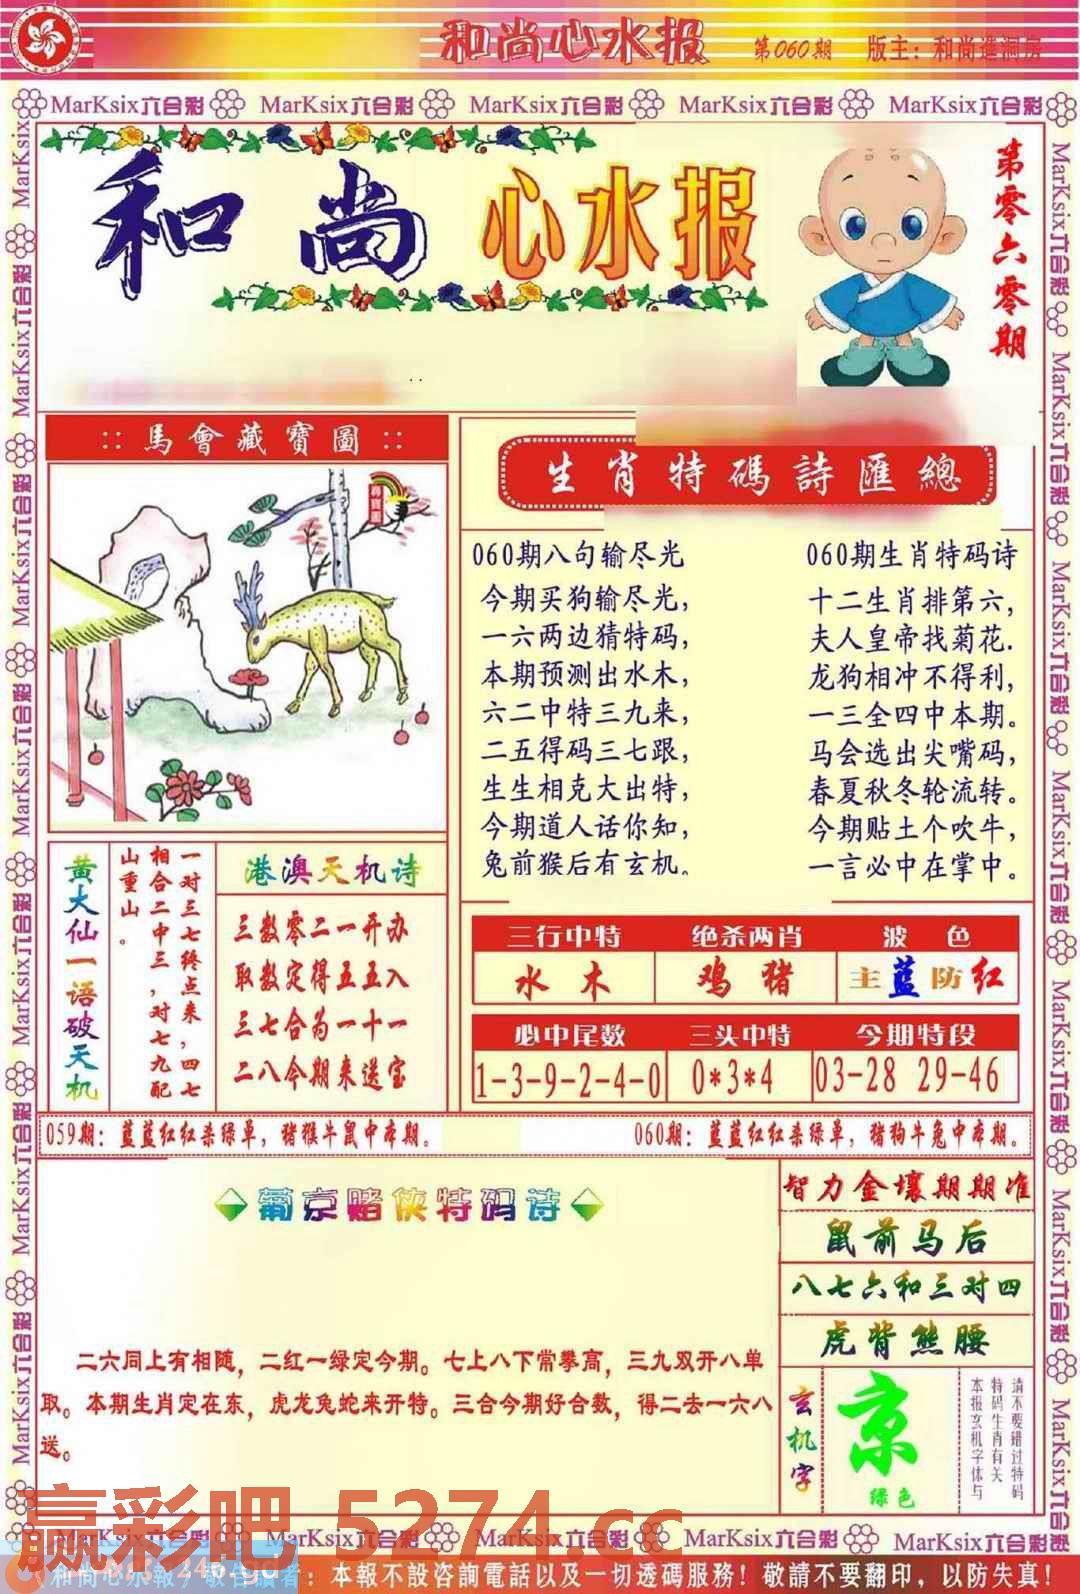 和尚心水报
第060期
版主：和尚進洞房
MarKsix六合彩 MarKsix六合彩 MarKsix六合彩 MarKsix六合彩 MarKsix六合彩
和尚 心水报
第零六零期
∷馬會藏寶圖∷
尋寶圖
生肖特碼詩匯總
060期八句输尽光
今期买狗输尽光，
一六两边猜特码，
本期预测出水木，
六二中特三九来，
二五得码三七跟，
生生相克大出特，
今期道人话你知，
兔前猴后有玄机。
060期生肖特码诗
十二生肖排第六，
夫人皇帝找菊花.
龙狗相冲不得利，
一三全四中本期。
马会选出尖嘴码，
春夏秋冬轮流转。
今期贴土个吹牛，
一言必中在掌中。
黄大仙一语破天机
一对三七终点来，四七
相合二中三，对七九配
山重山。
港澳天机诗
三数零二一开办
取数定得五五入
三七合为一十一
二八今期来送宝
三行中特 绝杀两肖 波 色
水木 鸡猪 主蓝防红
必中尾数 三头中特 今期特段
1-3-9-2-4-0 0*3*4 03-28 29-46
059期：蓝蓝红红杀绿单，猪猴牛鼠中本期。
060期：蓝蓝红红杀绿单，猪狗牛兔中本期。
葡京赌侠特码诗
二六同上有相随，二红一绿定今期。七上八下常攀高，三九双开八单
取。本期生肖定在东，虎龙兔蛇来开特。三合今期好合数，得二去一六八
送。
智力金壤期期准
鼠前马后
八七六和三对四
虎背熊腰
玄机字
京
绿色
请不要错过特码
特码生肖有关
本报玄机字体与
赢彩吧 5274.cc
MarKsix六合彩 MarKsix六合彩 MarKsix六合彩 MarKsix六合彩
：本報不設咨詢電話以及一切透碼服務！敬請不要翻印，以防失真！